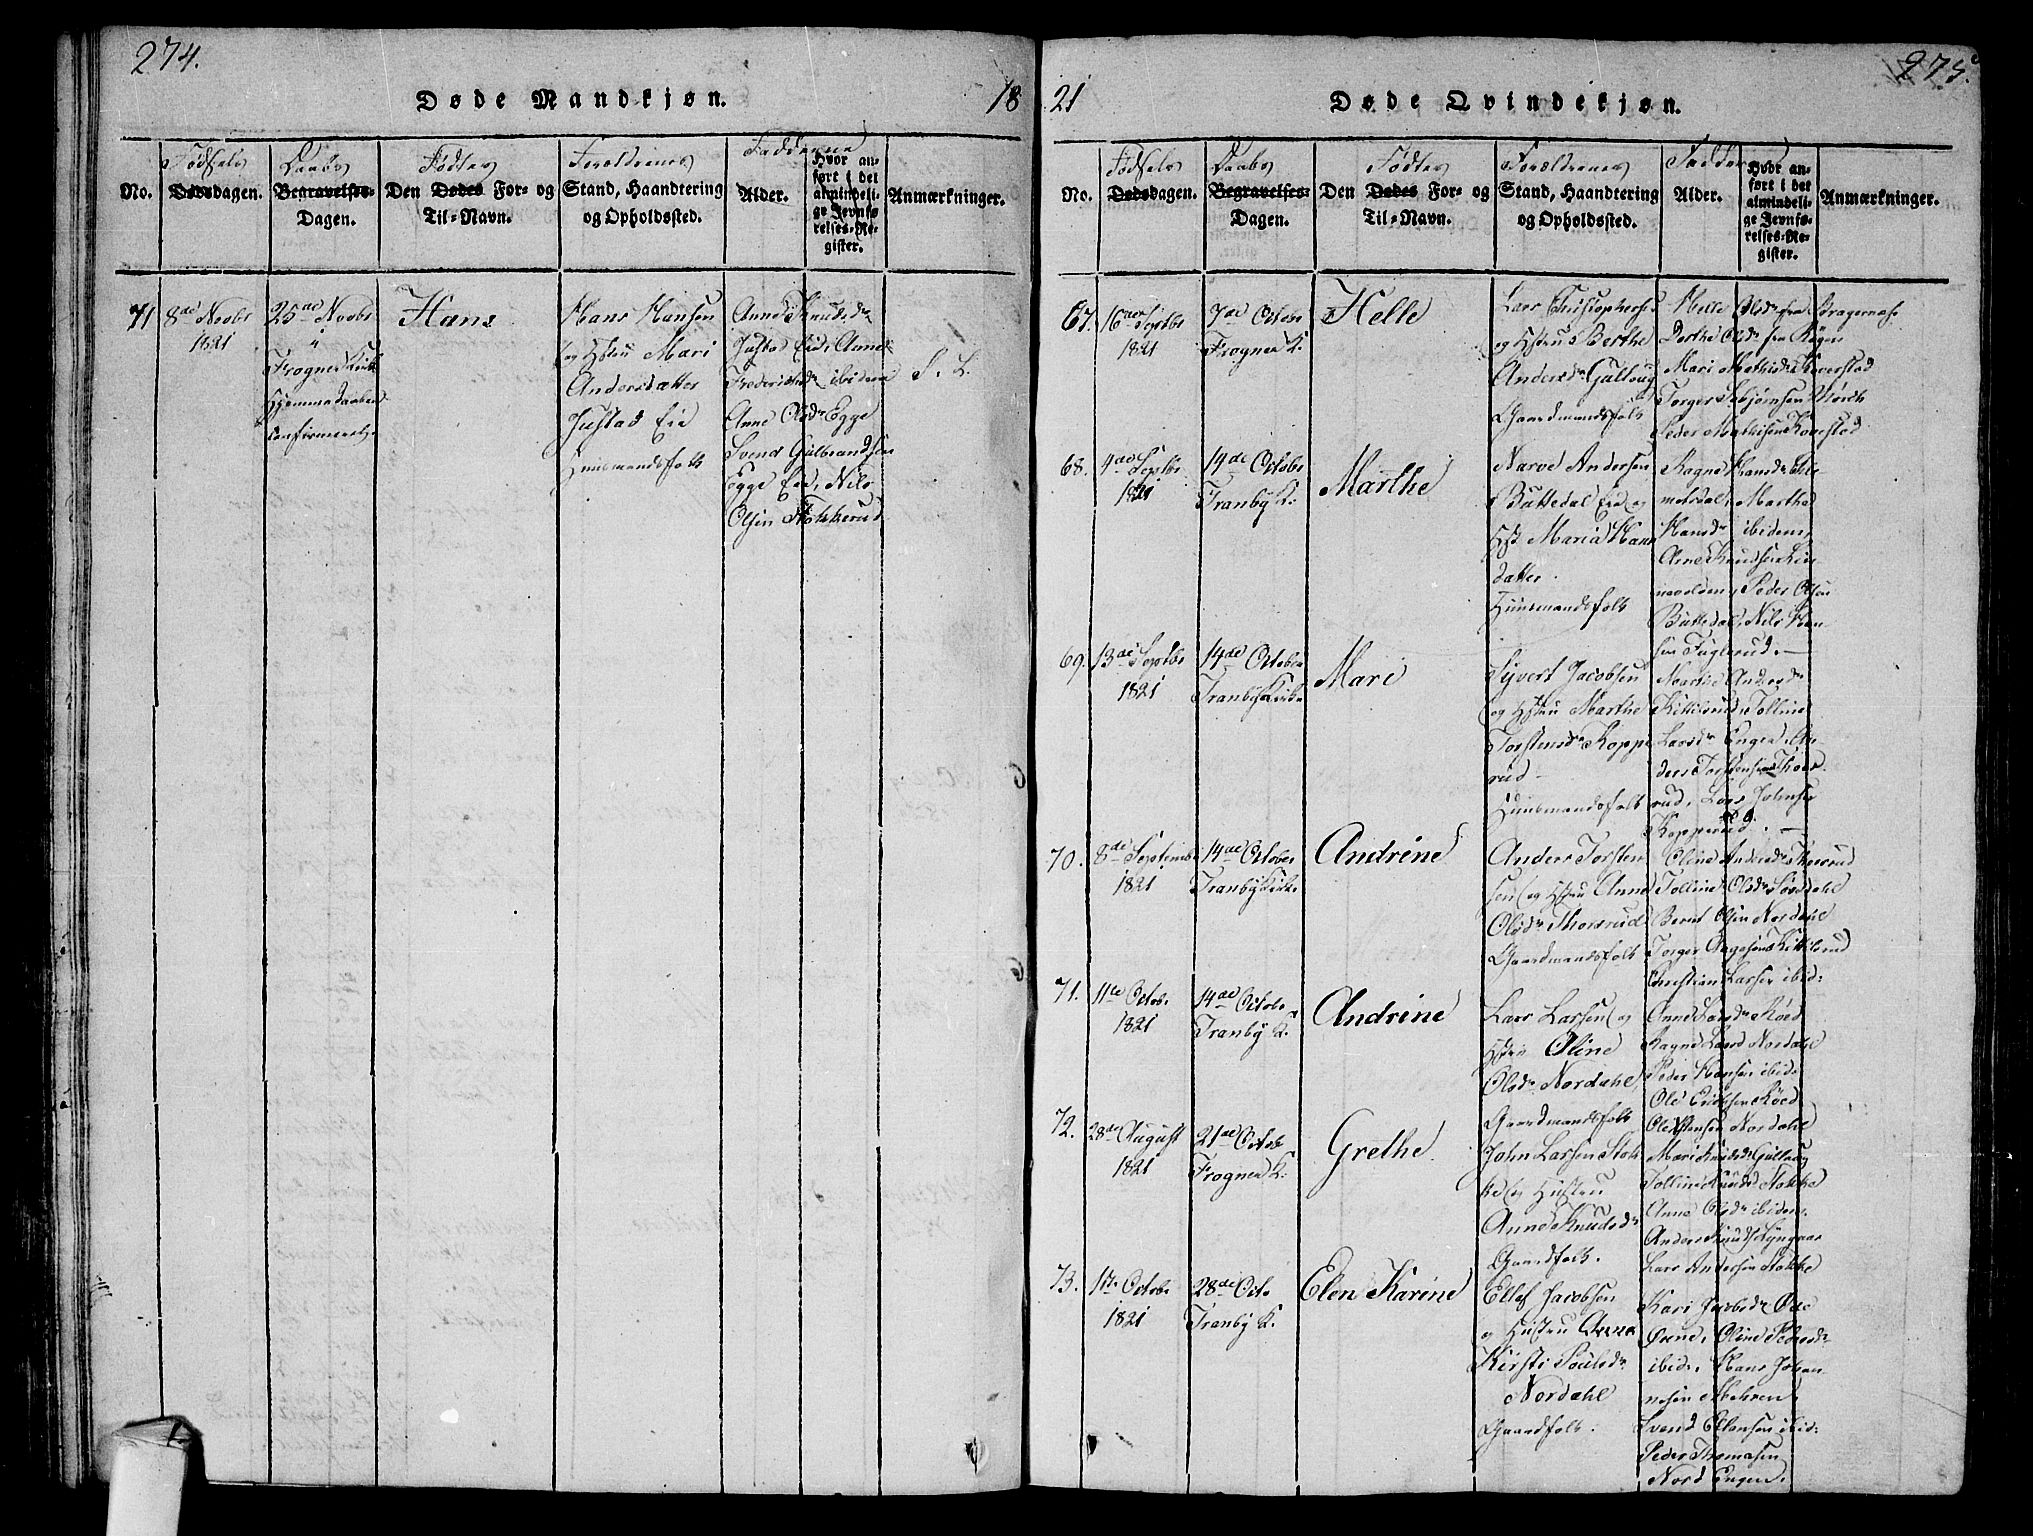 274.
Døde Mandkjøn.
18
Fødsels
Daabs
Fødtes
Forældrenes
Fadderne
No.
Dødsdagen.
Begravelses-
Dagen.
Den Dødes For- og
Til-Navn.
Stand, Haandtering
og Opholdssted.
Alder.
Hvor an-
ført i det
almindeli-
ge Jevnfø-
relses-Re-
gister.
Anmærkninger.
71
8de Novbr
1821
25de Novbr
Frogner Kirke
Hjemmedaaben
confirmeret
Hans
Hans Hansen
og Hstru Mari
Andersdatter
Justad Eie
Huusmandsfolk
Anne Knudsdr
Justad Eie, Anne
Fredericksdr ibidem
Anne Olsdr Egge
Svend Gulbrandsen
Egge Eie, Nils
Olsen Stokkerud
S. L.
21
Døde Qvindekjøn.
275.
Fødsels
Daabs
Fødtes
Forældrenes
Faddere
No.
Dødsdagen.
Begravelses-
Dagen.
Den Dødes For- og
Til-Navn.
Stand, Haandtering
og Opholdssted.
Alder.
Hvor an-
ført i det
almindeli-
ge Jevnfø-
relses-Re-
gister.
Anmærkninger.
67.
16de Septbr
1821
7de Octobr
Frogner K.
Helle
Lars Christophersen
og Hstrue Berthe
Andersdr Gullaug
Gaardmandsfolk
Helle Olsdr fra Bragernæs
Dorthe Olsdr fra Røgen
Mari Mathisdr Koverstad
Torger Asbjørnsen
Peder Mathisen Koverstad
68.
4de Septbr
1821
14de Octobr
Tranby K.
Marthe
Narve Andersen
Buttedal Eie og
Hst Maria Hans
datter.
Huusmandsfolk
Ragne Hansdr
Marthe
Hansdr ibidem,
Arne Knudsen
Peder Olsen
Buttedal, Nils Han
sen Fuglerud.
69.
13de Septbr
1821
14de Octobr
Tranby Kirke
Mari
Syvert Jacobsen
og Hstru Marthe
Torstensdr Koppe
rud
Huusmandsfolk
Marthe Andersdr
Kittilsrud, Tolline
Larsdr Enger, An
ders Torstensen Thors
rud, Lars Johnsen
Kopperud.
70.
8de Septembr
1821
14de Octobr
Tranby Kirke
Andrine
Anders Torsten
sen og Hstru Anne
Olsdr Thorsrud
Gaardmandsfolk
Oline Andersdr Thorsrud
Tolline Olsdr Nordahl
Bernt Olsen Nordahl
Torger Aagesen Kittilsrud
Christian Larsen ibid:
71.
11te Octob.
1821
14de Octobr
Tranby K.
Andrine
Lars Larsen og
Hstru Oline
Olsdr Nordahl
Gaardmandsfolk
Anne Larsdr Røed
Ragne Larsd Nordahl
Peder Hansen ibid.
Ole Ericksen Røed
Ole Hansen Nordahl
72.
28de August
1821
21de Octob
Frogner K.
Grethe
John Larsen Stok
ke og Hustru
Anne Knudsdr
Gaardfolk.
Mari Knudsdr Gullaug
Tolline Knudsd Stokke
Anne Olsdr ibidem.
Anders Knuds Lyngaas
Lars Andersen Stokke
73.
1te Octob.
1821
28de Octo
Tranby K.
Elen Karine
Ellef Jacobsen
og Hustru Anne
Kirsti Poulsdr
Nordahl
Gaardfolk.
Kari Jacobsdr Øvre
Øvene, Oline Pedersdr
ibid., Hans Johan
nesen Mæhren,
Svend Ellensen ibid:
Peder Thomasen
Nord Engen.